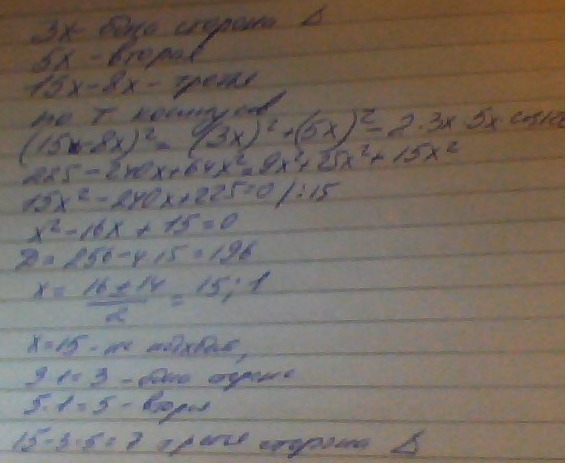 3x - одна сторона Δ
5x - вторая
15x-8x - третья
по Т косинусов
(15x-8x)² = (3x)²+(5x)² - 2·3x·5x
225-240x+64x²=9x²+25x²+15x²
15x²-240x+225=0 /:15
x²-16x+15=0
D=256-4·15=196
x = 16±14/2 = 15; 1
x=15 - не подходит,
3·1=3 - одна сторона
5·1=5 - вторая
15-3-5=7 третья сторона Δ